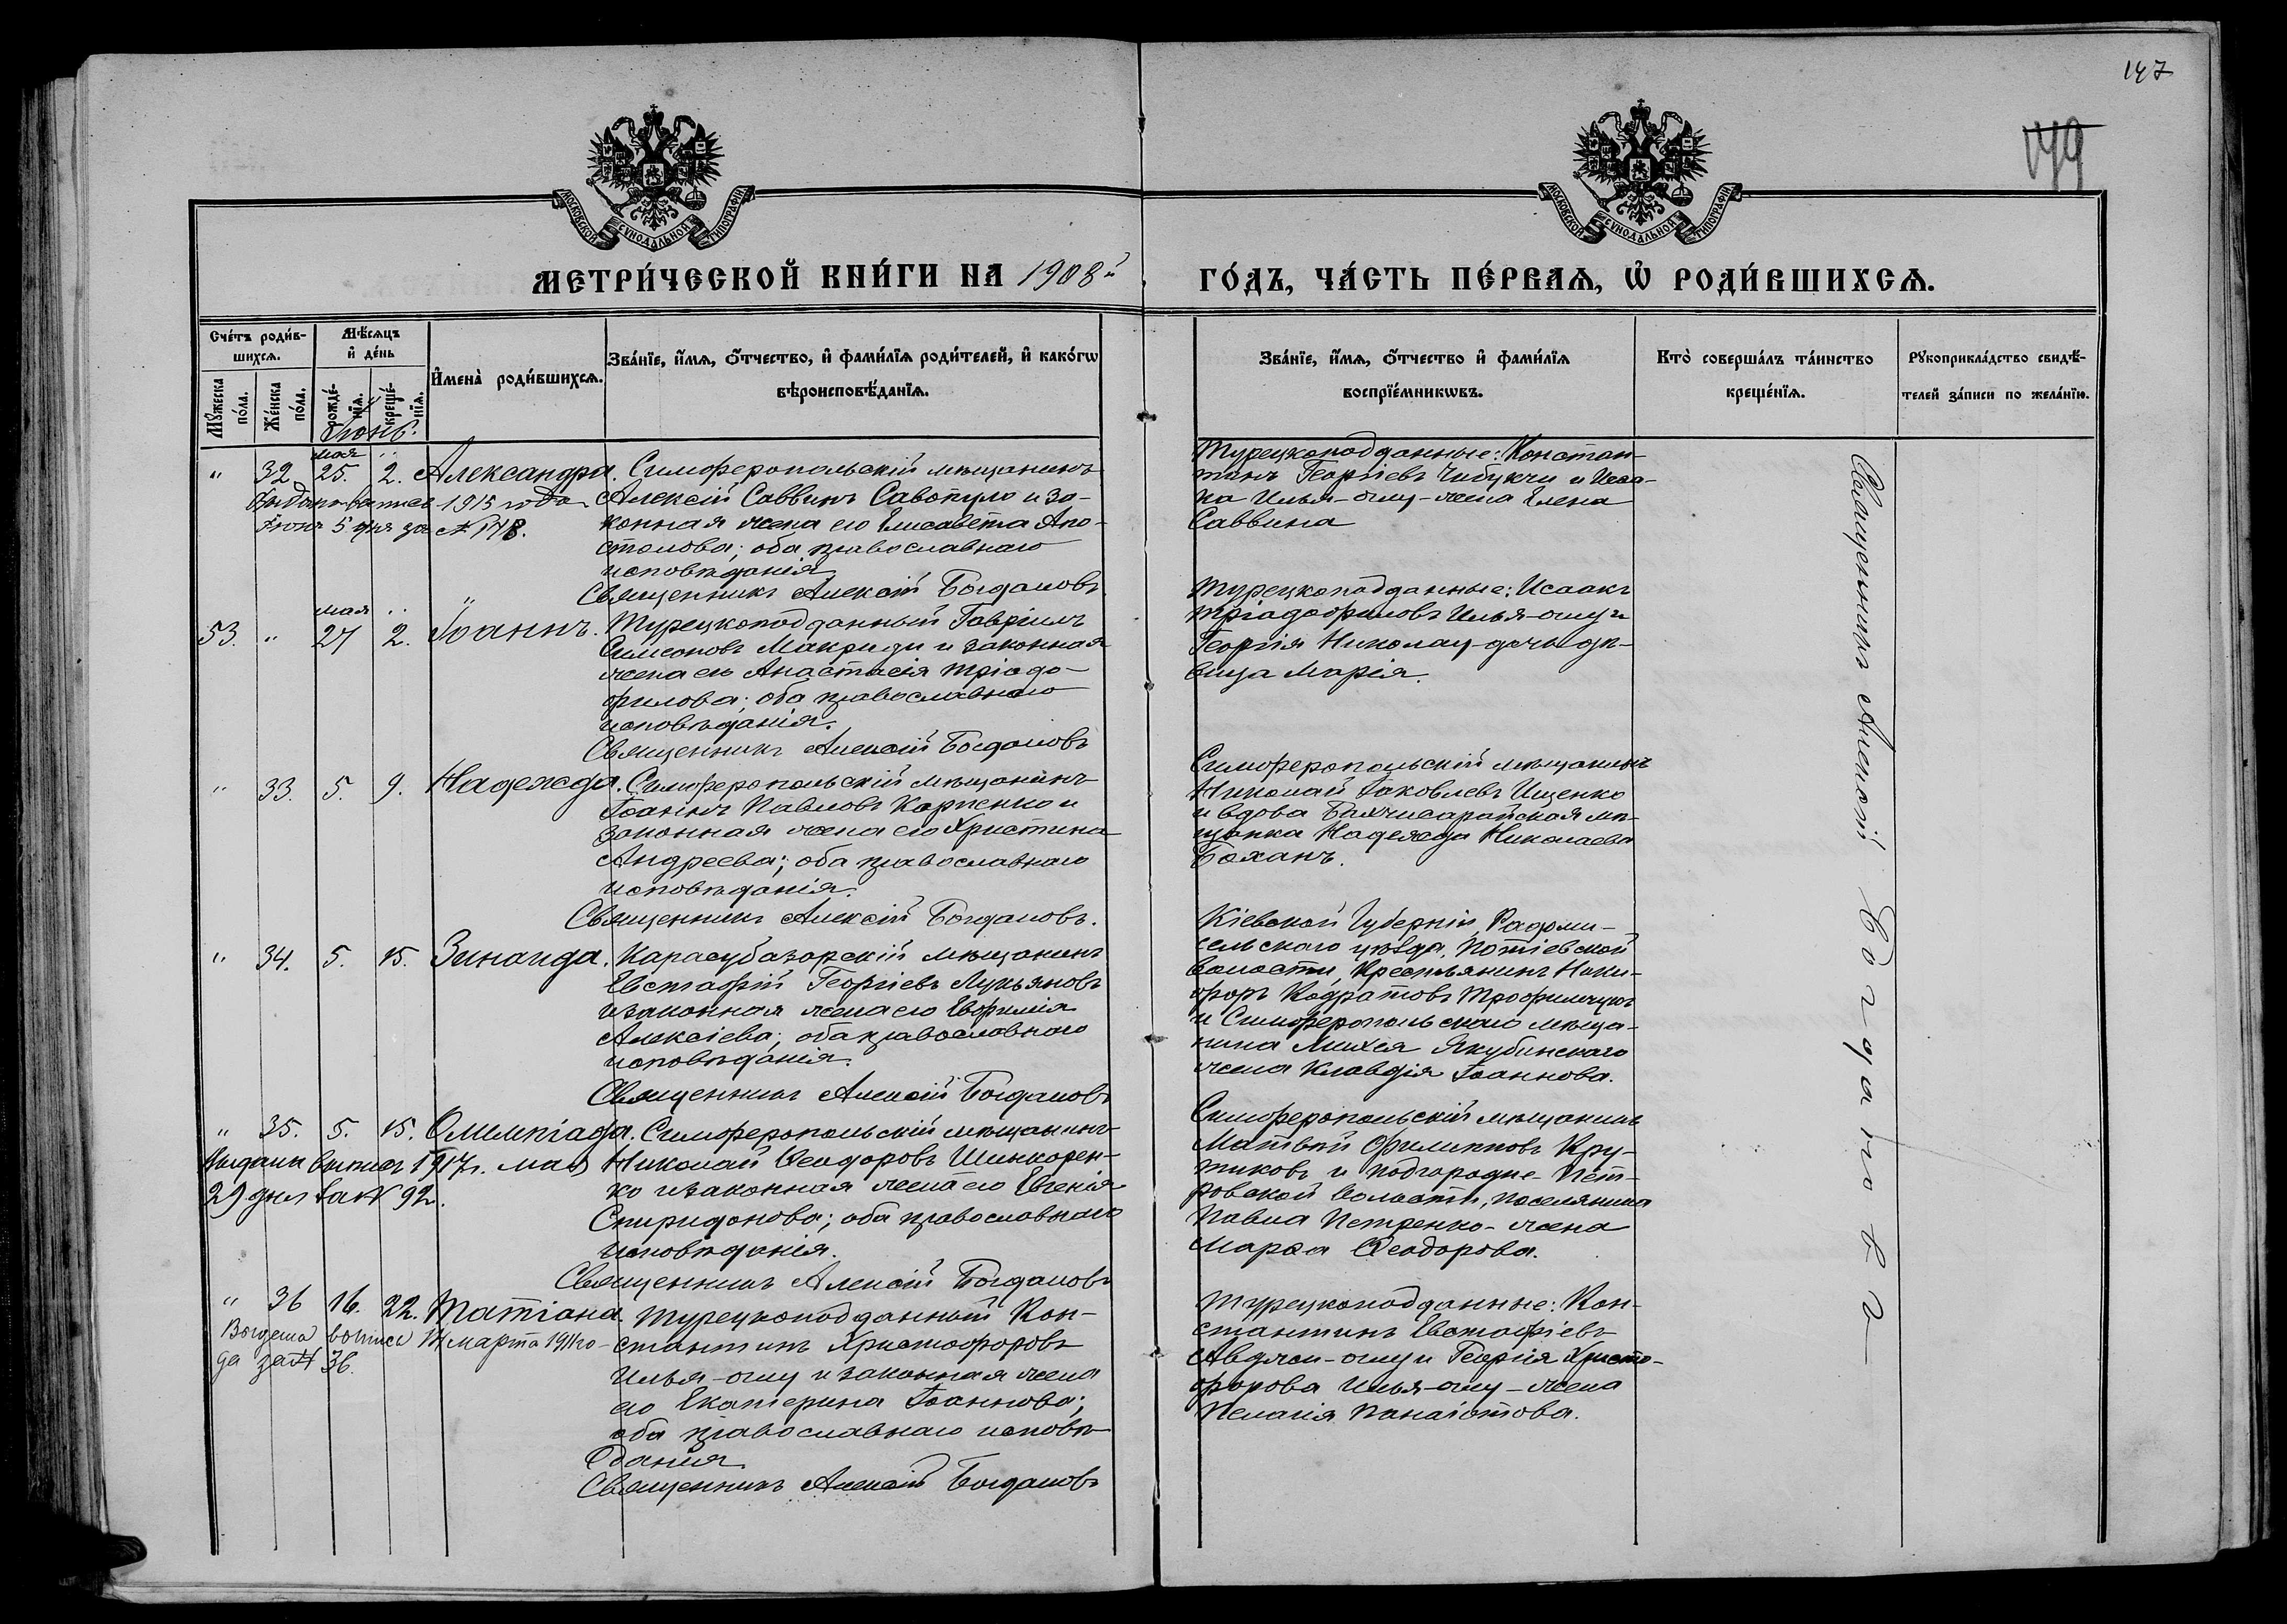 147
149
МОСКОВСКОЙ СѴНОДАЛЬНОЙ ТИПОГРАФІИ
МОСКОВСКОЙ СѴНОДАЛЬНОЙ ТИПОГРАФІИ
МЕТРИ́ЧЕСКОЙ КНИ́ГИ НА 1908й ГО́ДЪ, ЧА́СТЬ ПЕ́РВАѦ, Ѡ҆ РОДИ́ВШИХСѦ.
Сче́тъ роди́в-
шихсѧ.
Мѣ́сѧцъ
и҆ де́нь
Мꙋ́жеска по́ла.
Же́нска по́ла.
рожде́-
нїѧ.
креще́-
нїѧ.
И҆мена̀ роди́вшихсѧ.
Зва́нїе, и҆́мѧ, ѻ҆́тчество, и҆ фами́лїѧ роди́телей, и҆ како́гѡ
вѣроисповѣ́данїѧ.
Зва́нїе, и҆́мѧ, ѻ҆́тчество и҆ фами́лїѧ
воспрїе́мникѡвъ.
Кто̀ соверша́лъ та́инство
креще́нїѧ.
Рꙋкоприкла́дство свидѣ́-
телей за́писи по жела́нїю.
Іюнь.
мая
" 32 25. 2. Александра. Симферопольскій мѣщанинъ
Алексій Саввинъ Савопуло и за-
конная жена его Елисавета Апо-
столова; оба православнаго
исповѣданія.
Священникъ Алексій Богдановъ
1915 года
Іюня 5 дня за № 178.
Турецкоподданные: Констан-
тинъ Георгіевъ Чибукчи и Исаа-
ка Илья-оглу-жена Елена
Саввина
мая
53. " 27 2. Іоаннъ. Турецкоподданный Гавріилъ
Симеоновъ Макриди и законная
жена его Анастасія Тріадо-
филова; оба православнаго
исповѣданія.
Священникъ Алексій Богдановъ
Турецкоподданные: Исаакъ
Тріадофиловъ Илья-оглу и
Георгія Николау-дочь дѣ-
вица Марія.
" 33. 5. 9. Надежда. Симферопольскій мѣщанинъ
Іоаннъ Павловъ Карпенко и
законная жена его Христина
Андреева; оба православнаго
исповѣданія.
Священникъ Алексій Богдановъ.
Симферопольскій мѣщанинъ
Николай Іаковлевъ Ищенко
и вдова Бахчисарайская мѣ-
щанка Надежда Николаева
Боханъ.
" 34. 5. 15. Зинаида. Карасубазарскій мѣщанинъ
Евстафій Георгіевъ Лукьяновъ
и законная жена его Евфимія
Алексіева; оба православнаго
исповѣданія.
Священникъ Алексій Богдановъ
Кіевской Губерніи, Радоми-
сельскаго уѣзда, Потіевской
Волости, Крестьянинъ Ники-
форъ
и Симферопольскаго мѣща-
нина Михея Якубинскаго
жена Клавдія Іоаннова.
" 35. 5. 15. Олимпіада. Симферопольскій мѣщанинъ
Николай Ѳеодоровъ Шинкорен-
ко и законная жена его Евгенія
Спиридонова; оба православнаго
исповѣданія.
Священникъ Алексій Богдановъ
Выдана выпись 1917 г. мая
29 дня за № 92.
Симферопольскій мѣщанинъ
Матвѣй Филипповъ Кру-
тиковъ и подгородне-Пет-
ровской Волости, поселянина
Павла Петренко-жена
Марѳа Ѳеодорова.
" 36 16. 22. Татіана. Турецкоподданный Кон-
стантинъ Христофоровъ
Илья-оглу и законная жена
его Екатерина Іоаннова;
оба православнаго исповѣ-
данія
Священникъ Алексій Богдановъ
Выдана выпись 14 марта 1911 го-
да за № 36.
Турецкоподданные: Кон-
стантинъ Евстафіевъ
Авджи-оглу и Георгія Христо-
форова Илья-оглу-жена
Пелагія Панаіотова.
Священникъ Алексій Богдановъ